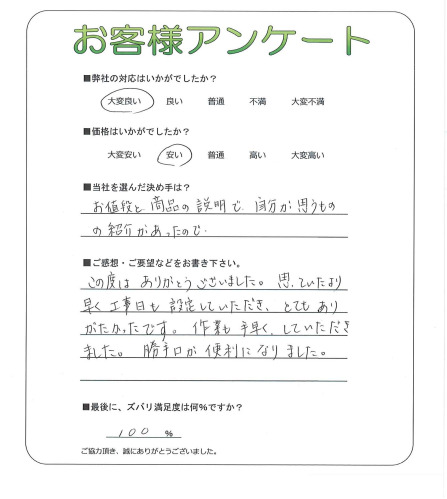 お客様アンケート
■弊社の対応はいかがでしたか？
大変良い 良い 普通 不満 大変不満
■価格はいかがでしたか？
大変安い 安い 普通 高い 大変高い
■当社を選んだ決め手は？
お値段と商品の説明で、自分が思うもの
の紹介があったので
■ご感想・ご要望などをお書き下さい。
この度は ありがとうございました。思っていたより
早く工事日も設定していただき、とてもあり
がたかったです。作業も手早く、していただき
ました。勝手口が便利になりました。
■最後に、ズバリ満足度は何%ですか？
100 %
ご協力頂き、誠にありがとうございました。